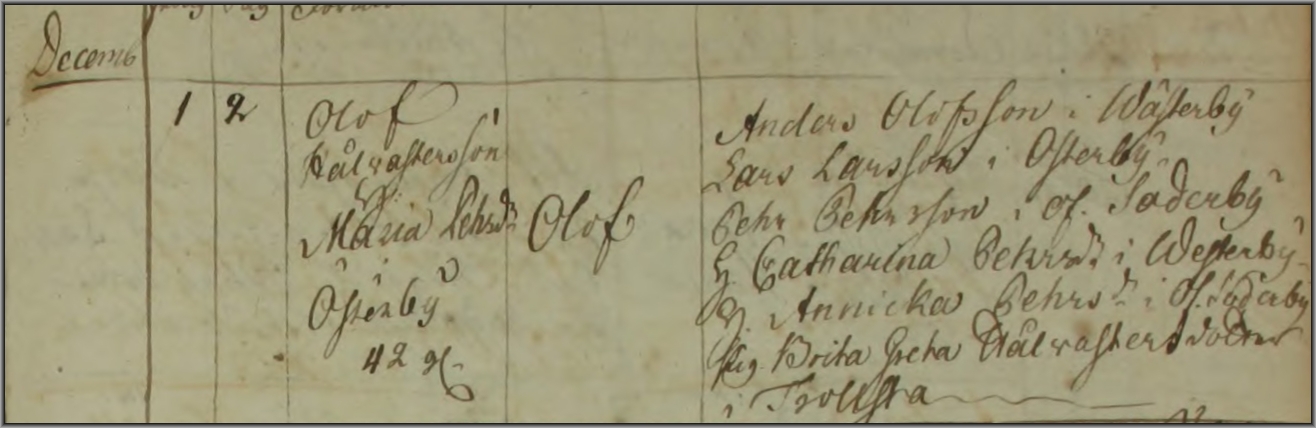 Decemb
1 2
Olof
Hålvastersson
Maria Pehrsdr
i
Österby
42 
Olof
Anders Olofsson i Wästerby
Lars Larsson i Österby
Pehr Pehrsson i Of. Söderby
H. Catharina Pehrsdr i Westerby
H. Annicka Pehrsdr i Of. Söderby
Pig. Brita Greta Hålvastersdotter
i Trollsta